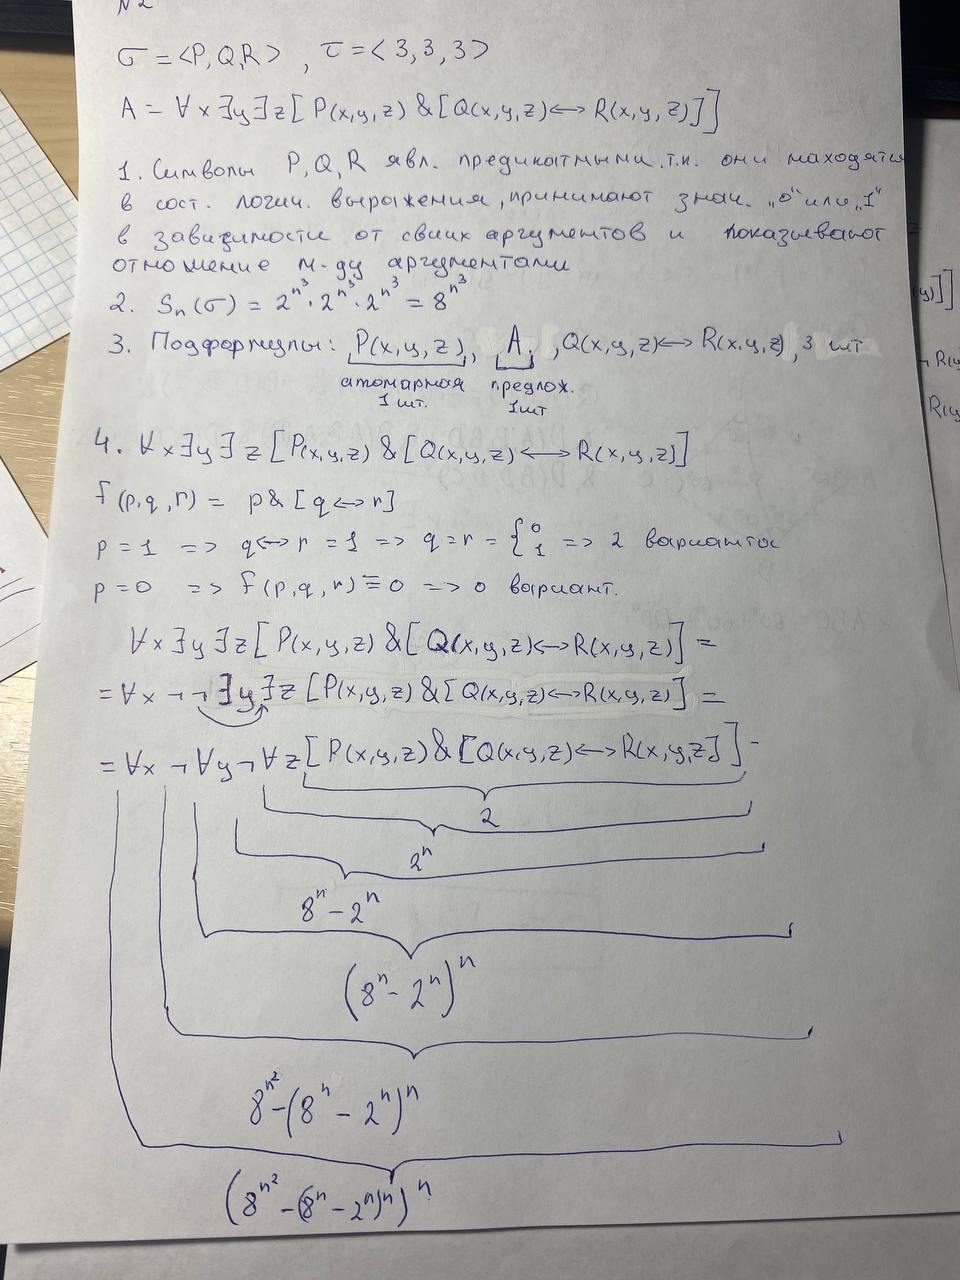 N2
σ = <P, Q, R> , τ = < 3, 3, 3 >
A = ∀x∃y∃z[P(x,y,z) & [Q(x,y,z) ↔ R(x,y,z)]]
1. Символы P, Q, R явл. предикатными. т.к. они находятся
в сост. логич. выражения, принимают знач. „0“ или „1“
в зависимости от своих аргументов и показывают
отношение м-ду аргументами
2. Sₙ(σ) = 2^n³ · 2^n³ · 2^n³ = 8^n³
3. Подформулы: P(x,y,z), A, Q(x,y,z) ↔ R(x,y,z), 3 шт
атомарная предлож.
1 шт. 1шт
4. ∀x∃y∃z[P(x,y,z) & [Q(x,y,z) ↔ R(x,y,z)]
f(p,q,r) = p & [q ↔ r]
p = 1 => q ↔ r = 1 => q = r = { 0 1 => 2 варианта
p = 0 => f(p,q,r) ≡ 0 => 0 вариант.
∀x∃y∃z[P(x,y,z) & [Q(x,y,z) ↔ R(x,y,z)] =
= ∀x ¬ ¬ ∃y∃z[P(x,y,z) & [Q(x,y,z) ↔ R(x,y,z)] =
= ∀x ¬ ∀y ¬ ∀z[P(x,y,z) & [Q(x,y,z) ↔ R(x,y,z]] -
2
2^n
8^n - 2^n
(8^n - 2^n)^n
8^n² - (8^n - 2^n)^n
(8^n² - (8^n - 2^n)^n)^n
y)]]
R(y
R(y